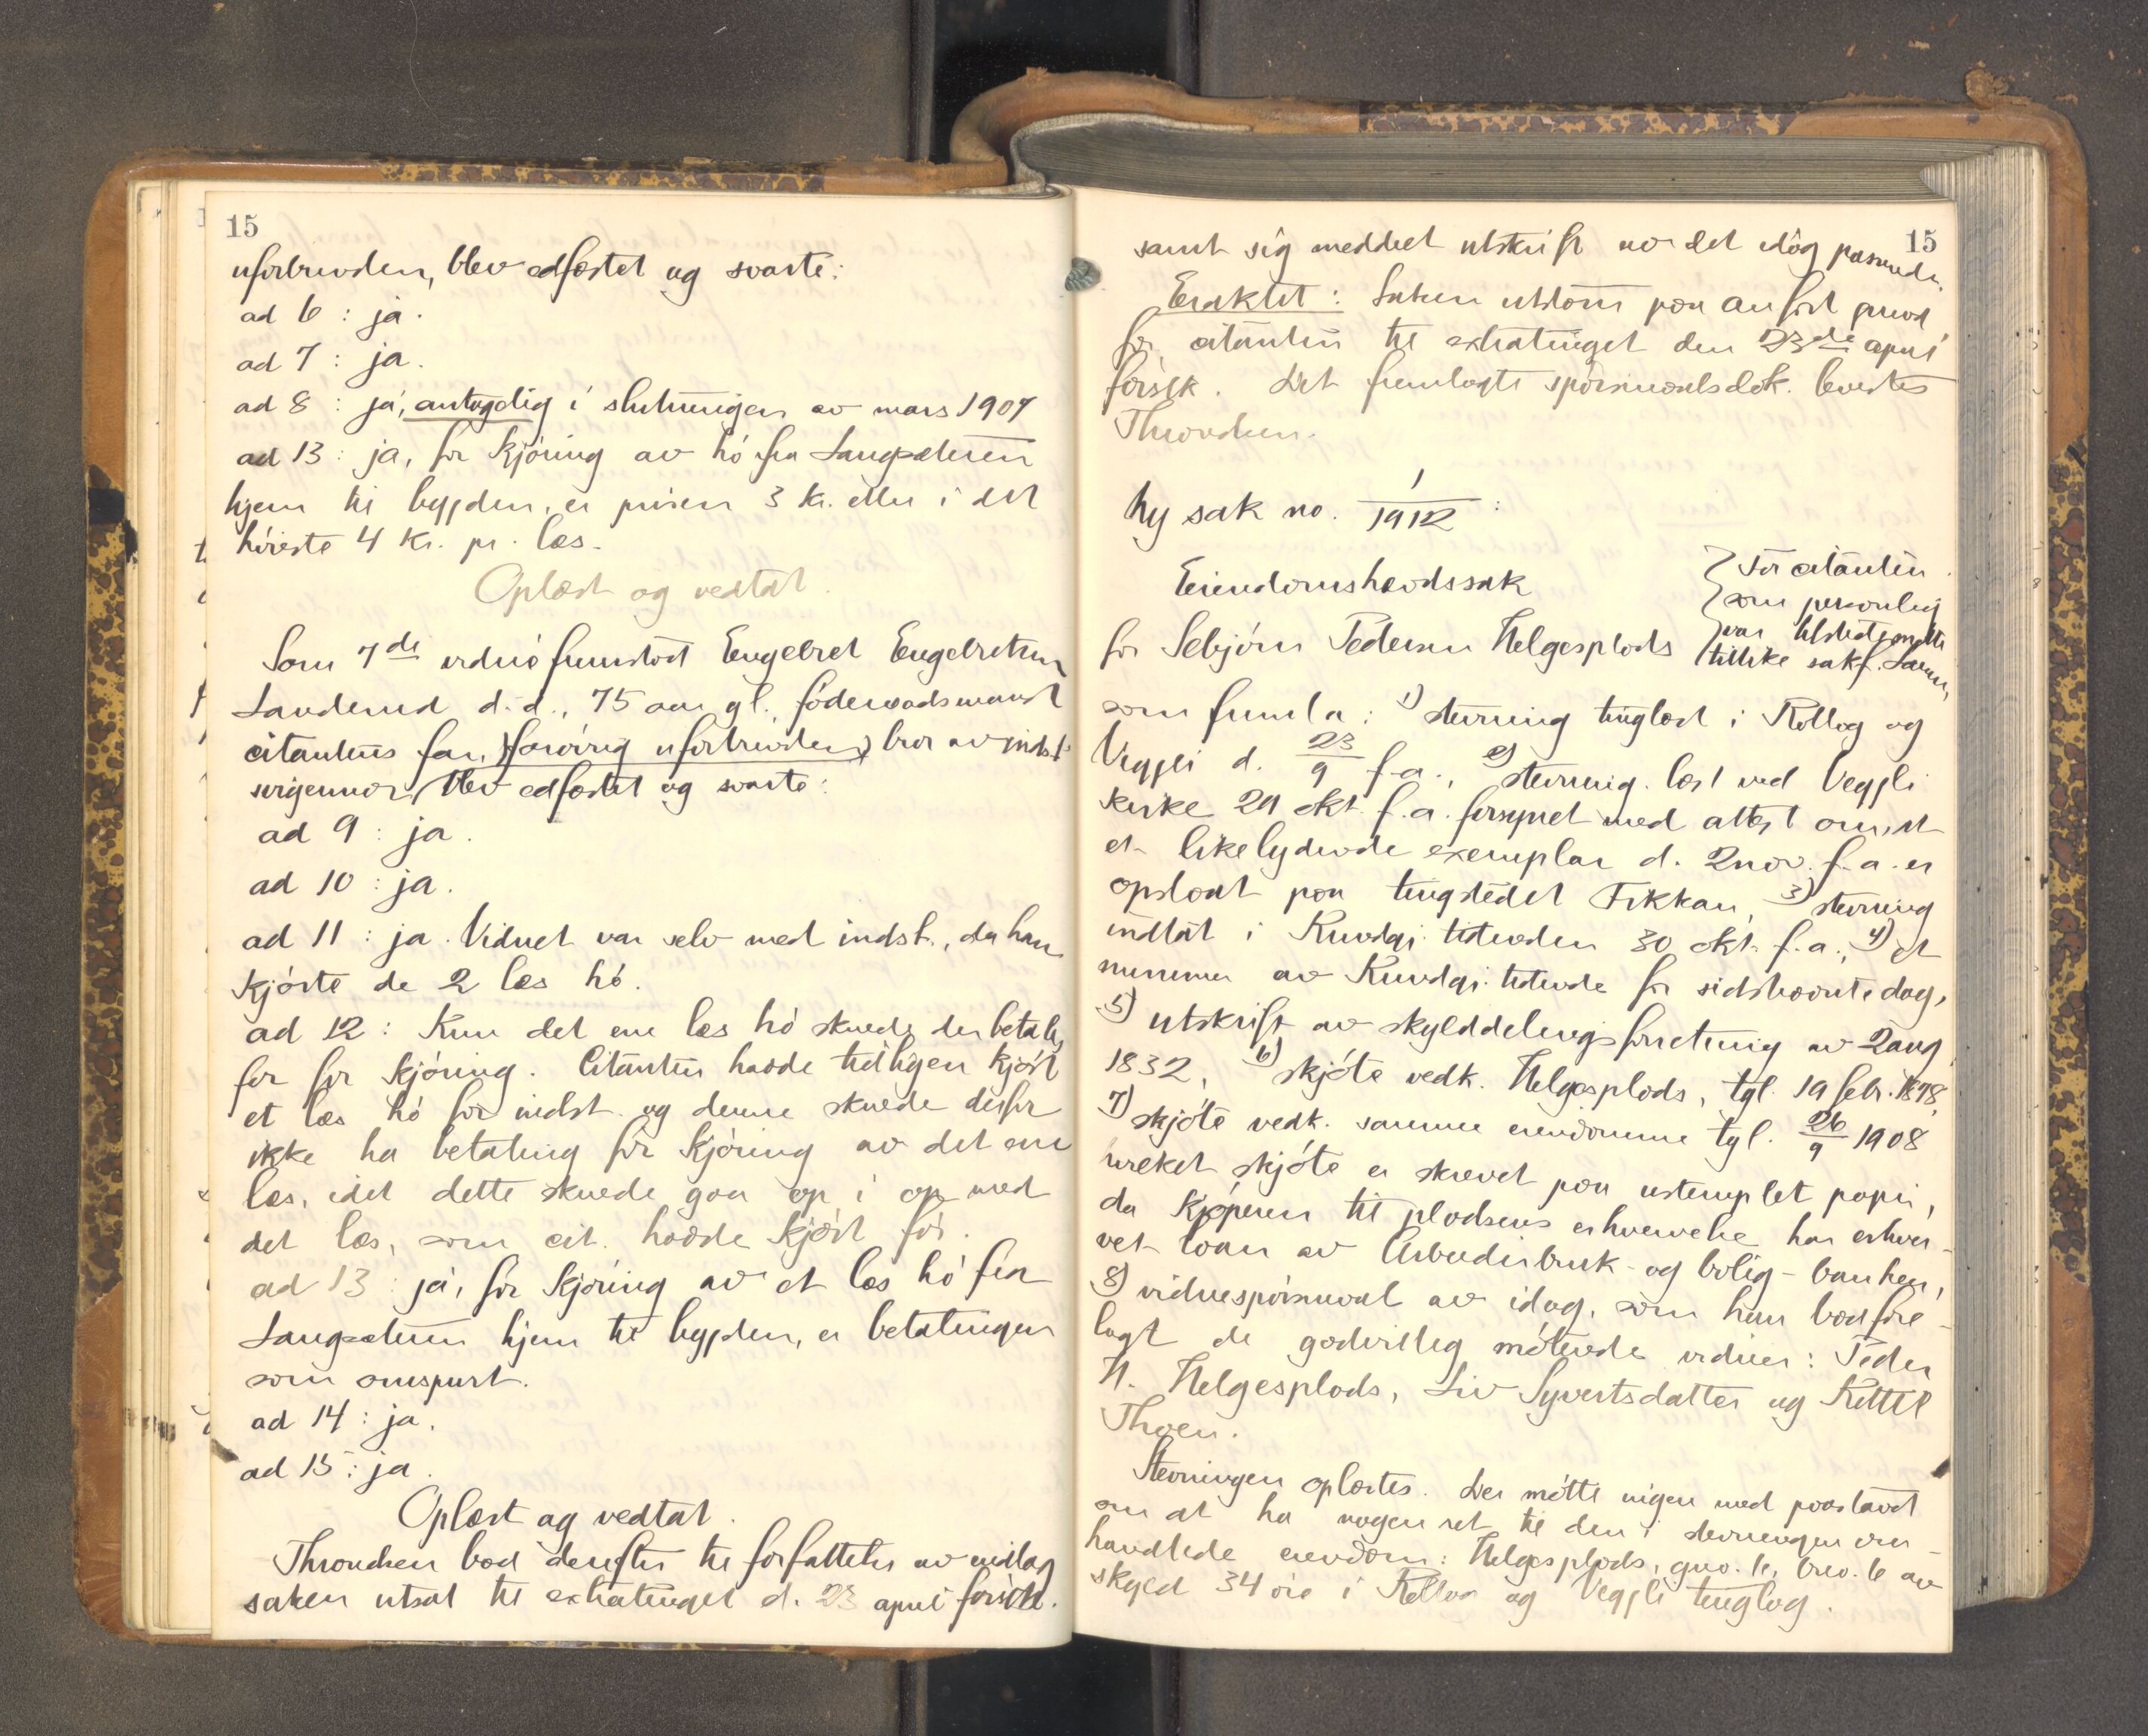 15
uforbunden, blev edfæstet og svarte:
ad 6 : ja.
ad 7 : ja.
ad 8 : ja, antagelig i slutningen av mars 1907
ad 13 : ja, for kjöring av hö fra Langsæteren
hjem til bygden, er prisen 3 kr. eller i det
höieste 4 kr. pr. læs.
Oplæst og vedtat.
Som 7de vidne fremstod Engebret Engebretsen
Landerud d. d., 75 aar gl., föderaadsmand
citantens far, forövrig uforbunden, bror av indst.
svigermor, blev edfæstet og svarte:
ad 9 : ja.
ad 10 : ja.
ad 11 : ja. Vidnet var selv med indst., da han
kjörte de 2 læs hö.
ad 12 : Kun det ene læs hö skuede der betales
for for kjöring. Citanten hadde tidligen kjört
et læs hö for indst. og denne skuede derfor
ikke ha betaling for kjöring av det ene
læs, idet dette skuede gaa op i op med
det læs, som cit. hadde kjört för.
ad 13 : ja, for kjöring av et læs hö fra
Langsæteren hjem til bygden, er betalingen
som omspurt.
ad 14 : ja.
ad 15 : ja.
Oplæst og vedtat.
Throndsen bad derefter til forfattelse av indlæg
saken utsat til extratinget d. 23 april förstk.
15
samt sig meddelt utskrift av det idag passerede.
Eragtet : Saken utstaar paa anfört grund
for citanten til extratinget den 23de april
förstk. Det fremlagte spörsmaalsdok. levertes
Throndsen.
Ny sak no. 1/1912 :
Eiendomshævdssak
for Sebjörn Pedersen Helgesplads
For citanten
som personlig
var tilstede, mötte
tillike sakf. Larsen,
som fremla : 1) stevning tinglæst i Rollag og
Veggli d. 23/9 f.a., 2) stevning læst ved Veggli
kirke 29 okt. f.a. forsynet med attest om, at
et likelydende exemplar d. 2 nov. f.a. er
opslaat paa tingstedet Fikkan, 3) stevning
indtat i Kundgj. tidenden 30 okt. f.a., 4) et
nummer av Kundgj. tidende for sidstnævnte dag,
5) utskrift av skylddelingsforretning av 2 aug.
1832, 6) skjöte vedk. Helgesplads, tgl. 19 febr. 1878,
7) skjöte vedk. samme eiendomme tgl. 26/9 1908
hvilket skjöte er skrevet paa ustemplet papir,
da kjöperen til pladsens erhvervelse har erhver-
vet laan av Arbeiderbruk- og bolig-banken,
8) vidnespörsmaal av idag, som han bad fore-
lagt de godvillig mötende vidner : Peder
H. Helgesplads, Liv Syvertsdatter og Kittil
Thoen.
Stevningen oplæstes. Der mötte ingen med paastand
om at ha nogen ret til den i stevningen om-
handlede eiendom : Helgesplads, gno. 16, brno. 6 av
skyld 34 öre i Rollag og Veggli tinglag.